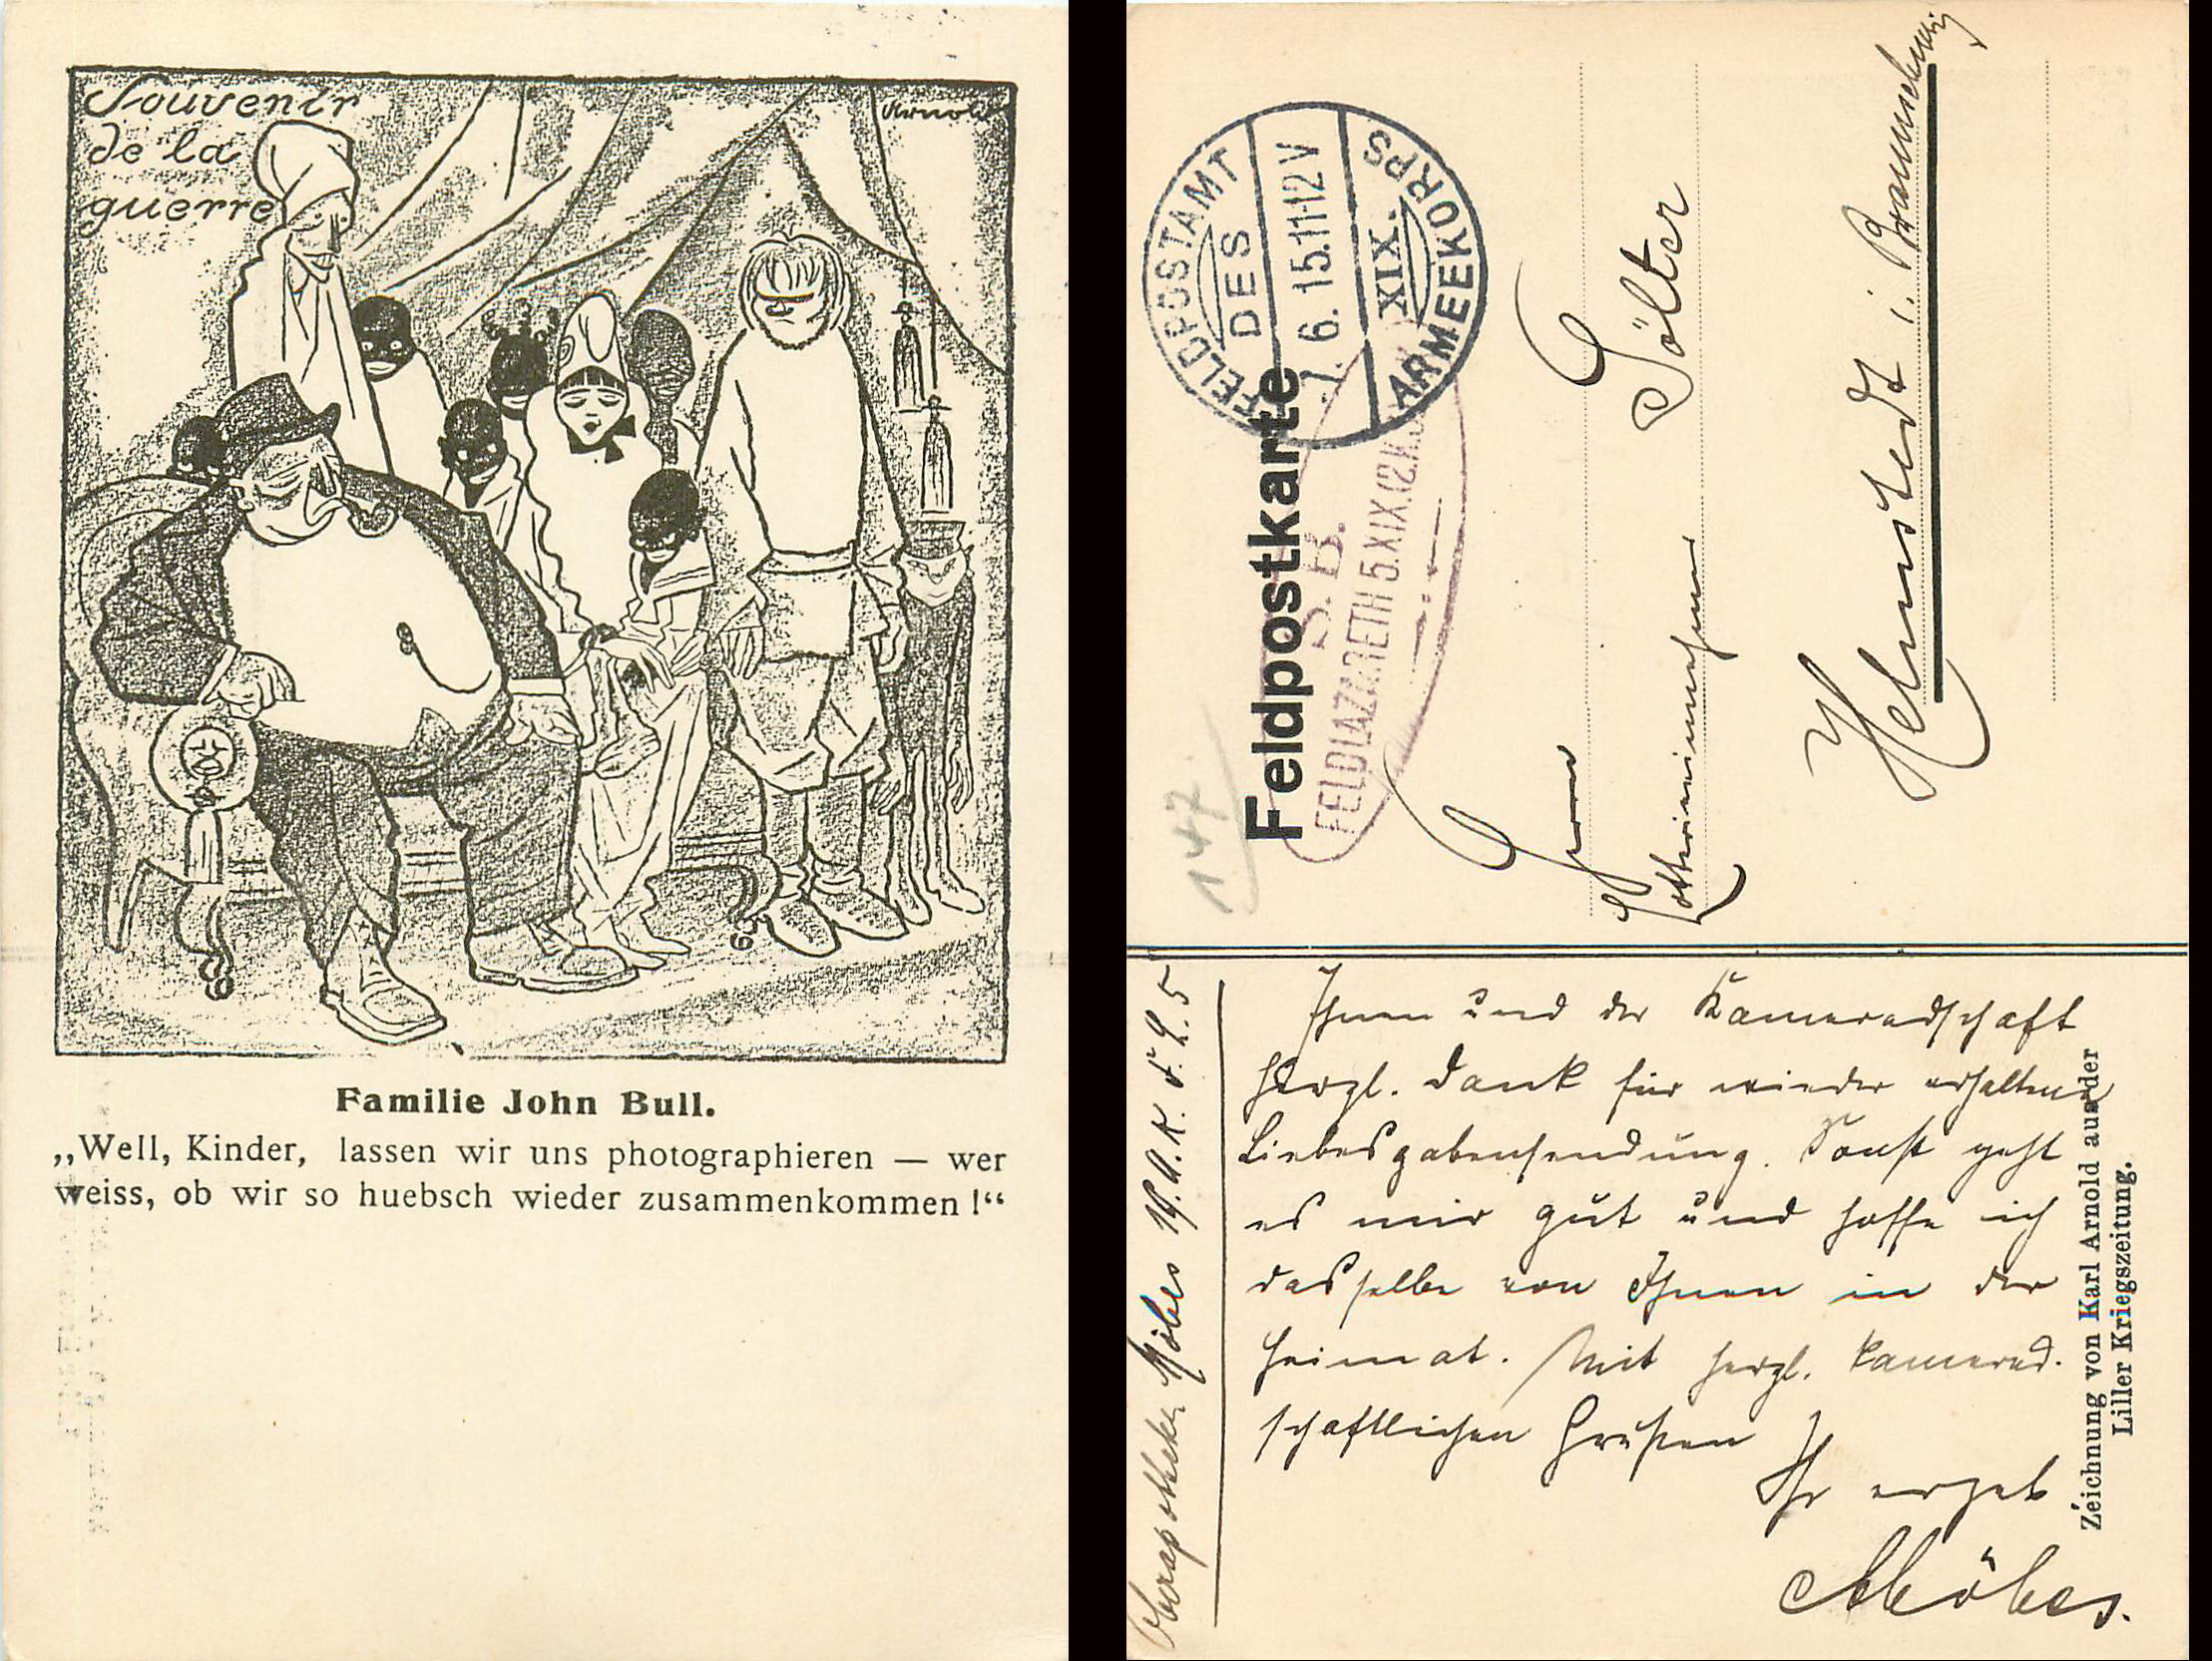 Souvenir
de la
guerre
Arnold
Familie John Bull.
„Well, Kinder, lassen wir uns photographieren — wer
weiss, ob wir so huebsch wieder zusammenkommen!“
147.
Feldpostkarte
FELDPOSTAMT
DES
7.6.15.11-12V
XIX.
ARMEEKORPS
S. B.
FELDLAZARETH 5.XIX.(2.K.S.
Herrn
Sölter
Helmstedt i. Braunschweig
Oberapotheker Möbes 19. A. K. F. L. 5
Ihnen und der Kameradschaft
herzl. Dank für wieder erhaltene
Liebesgabensendung. Sonst geht
es mir gut und hoffe ich
dasselbe von Ihnen in der
Heimat. Mit herzl. kamerad-
schaftlichen Grüßen
Ihr ergeb
Möbes.
Zeichnung von Karl Arnold aus der
Liller Kriegszeitung.